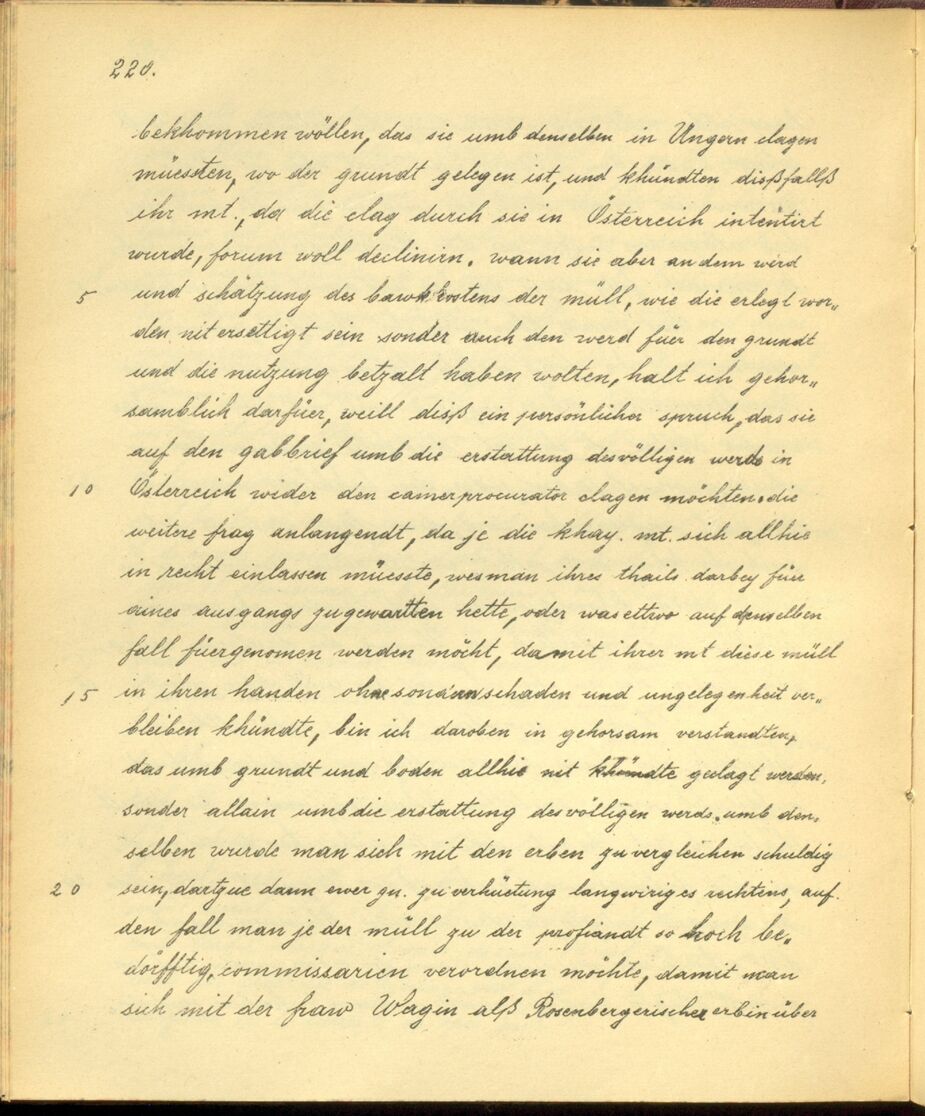 220.
bekhommen wöllen, das sie umb denselben in Ungern clagen
müessten, wo der grundt gelegen ist, und khündten dißfallß
ihr mt., da die clag durch sie in Österreich intentirt
wurde, forum woll declinirn. wann sie aber an dem werd
5 und schätzung des bawkhostens der müll, wie die erlegt wor„
den nit ersettigt sein sonder auch den werd für den grundt
und die nutzung betzalt haben wolten, halt ich gehor„
samblich darfüer, weill diß ein persönlicher spruch, das sie
auf den gabbrief umb die erstattung des völligen werds in
10 Österreich wider den camerprocurator clagen möchten. die
weitere frag anlangendt, da je die khay. mt. sich allhie
in recht einlassen müesste, wes man ihres thails darbey für
eines ausgangs zugewartten hette, oder was ettwo auf denselben
fall füergenomen werden möcht, damit ihrer mt diese müll
15 in ihren handen ohne sondern schaden und ungelegenheit ver„
bleiben khündte, bin ich daroben in gehorsam verstandten,
das umb grundt und boden allhie nit khündte geclagt werden,
sonder allain umb die erstattung des völligen werds. umb den„
selben wurde man sich mit den erben zu vergleichen schuldig
20 sein, dartzue dann ewer gn. zu verhüetung langwiriges rechtens, auf
den fall man je der müll zu der profiandt so hoch be„
dörfftig, commissarien verordnen möchte, damit man
sich mit der fraw Wagin alß Rosenbergerischer erbin über